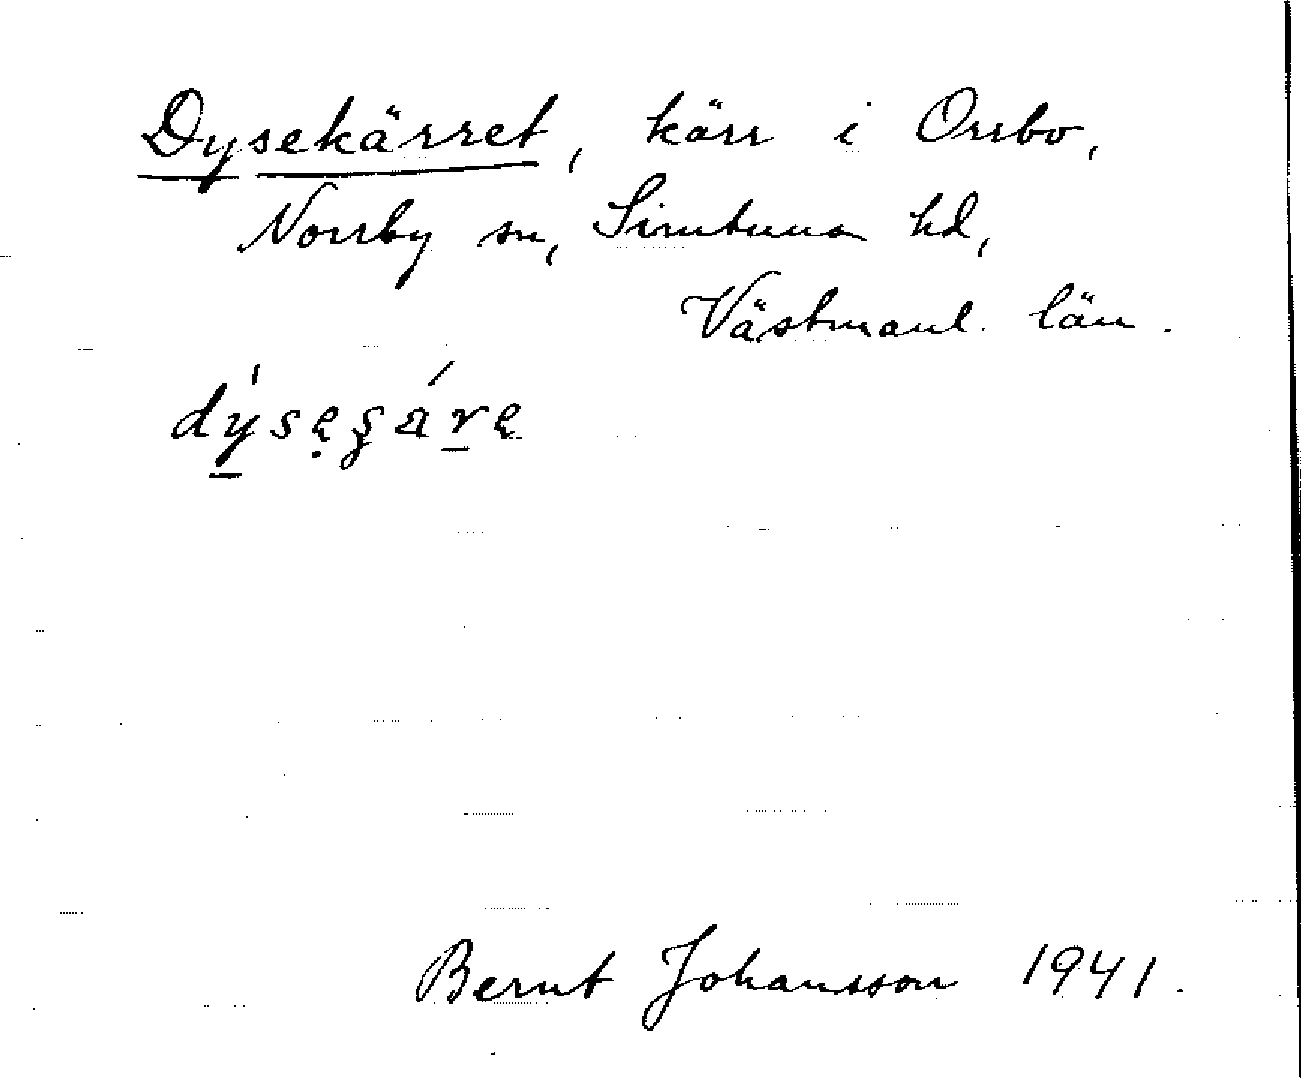 Dysekärret, kärr i Orrbo,
Norrby sn, Simtuna hd,
Västmanl. län.
Bernt Johansson 1941.